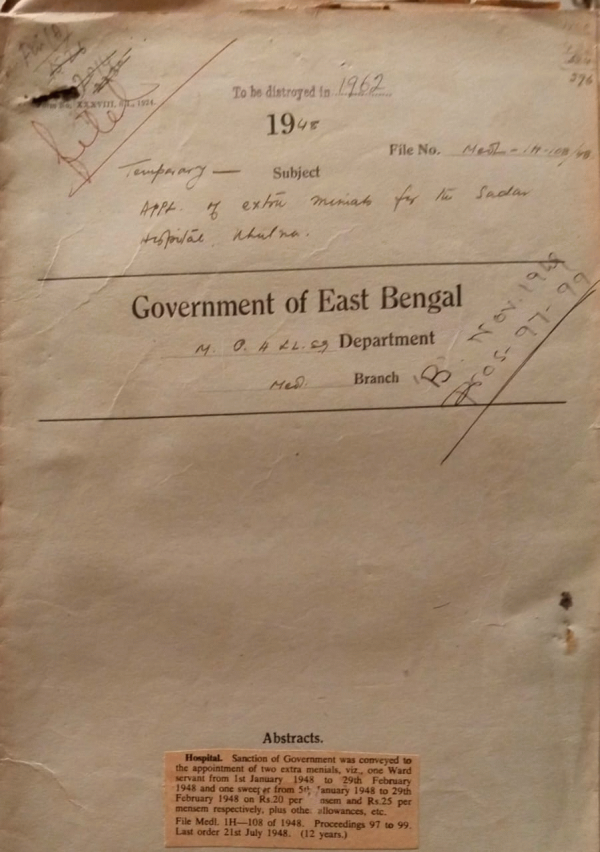 To be distroyed in 1962
1948
File No. Medl-1H-108/48
filed
Temporary — Subject
APPt. of extra menials for the Sadar
Hospital, Khulna.
Government of East Bengal
Department
Med. Branch
B. Nov. 1948
Nos. 97-99
Abstracts.
Hospital. Sanction of Government was conveyed to
the appointment of two extra menials, viz., one Ward
servant from 1st January 1948 to 29th February
1948 and one sweeper from 5th January 1948 to 29th
February 1948 on Rs.20 per mensem and Rs.25 per
mensem respectively, plus other allowances, etc.
File Medl. 1H—108 of 1948. Proceedings 97 to 99.
Last order 21st July 1948. (12 years.)